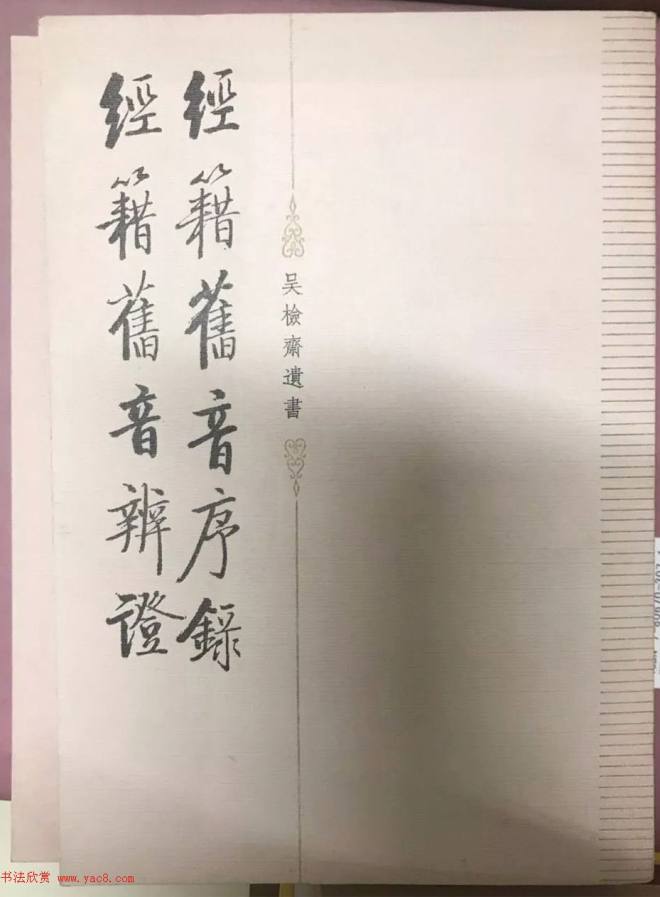 吴檢齋遺書
經籍舊音序録
經籍舊音辨證
书法欣赏 www.yac8.com